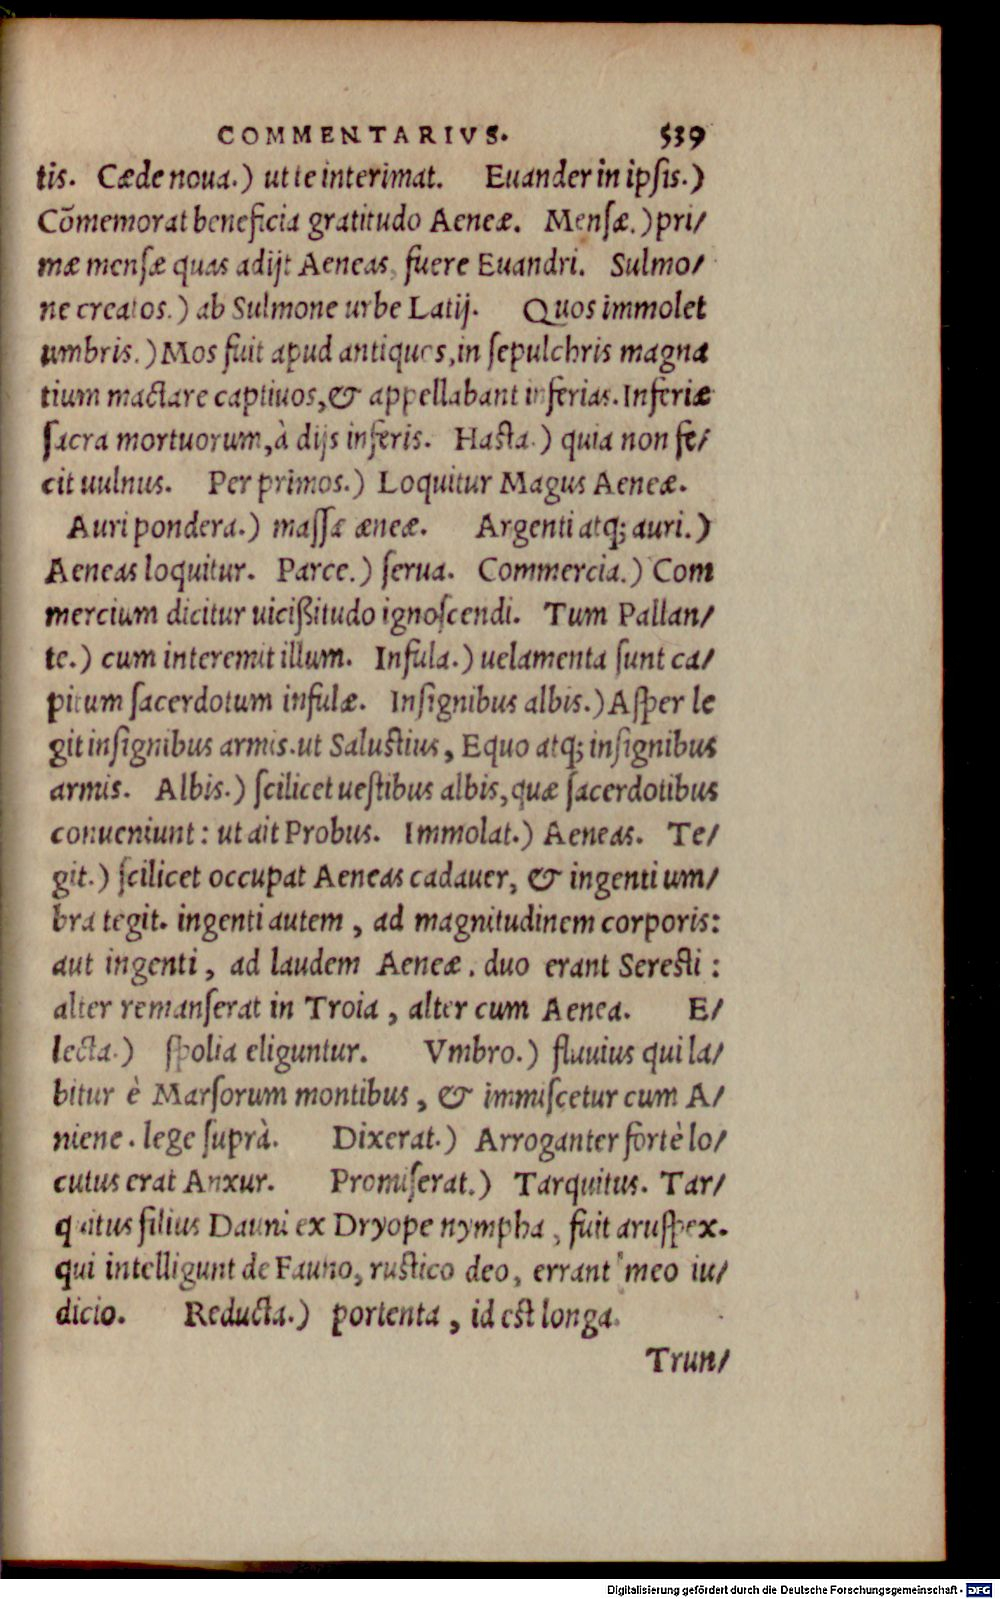 COMMENTARIVS. 539
tis. Cæde noua.) ut te interimat. Euander in ipſis.)
Cõmemorat beneficia gratitudo Aeneæ. Menſæ.) pri/
mæ menſæ quas adijt Aeneas, fuere Euandri. Sulmo/
ne creatos.) ab Sulmone urbe Latij. Quos immolet
umbris.) Mos fuit apud antiquos, in ſepulchris magna
tium mactare captiuos, & appellabant inferias. Inferiæ
ſacra mortuorum, à dijs inferis. Haſta.) quia non fe/
cit uulnus. Per primos.) Loquitur Magus Aeneæ.
Auri pondera.) maſſæ æneæ. Argenti atq; auri.)
Aeneas loquitur. Parce.) ſerua. Commercia.) Com
mercium dicitur uicißitudo ignoſcendi. Tum Pallan/
te.) cum interemit illum. Infula.) uelamenta ſunt ca/
pitum ſacerdotum infulæ. Inſignibus albis.) Aſper le
git inſignibus armis. ut Saluſtius, Equo atq; inſignibus
armis. Albis.) ſcilicet ueſtibus albis, quæ ſacerdotibus
conueniunt: ut ait Probus. Immolat.) Aeneas. Te/
git.) ſcilicet occupat Aeneas cadauer, & ingenti um/
bra tegit. ingenti autem, ad magnitudinem corporis:
aut ingenti, ad laudem Aeneæ. duo erant Sereſti:
alter remanſerat in Troia, alter cum Aenea. E/
lecta.) ſpolia eliguntur. Vmbro.) fluuius qui la/
bitur è Marſorum montibus, & immiſcetur cum A/
niene. lege ſuprà. Dixerat.) Arroganter fortè lo/
cutus erat Anxur. Promiſerat.) Tarquitus. Tar/
quitus filius Dauni ex Dryope nympha, fuit aruſpex.
qui intelligunt de Fauno, ruſtico deo, errant meo iu/
dicio. Reducta.) portenta, id eſt longa.
Trun/
Digitalisierung gefördert durch die Deutsche Forschungsgemeinschaft - DFG